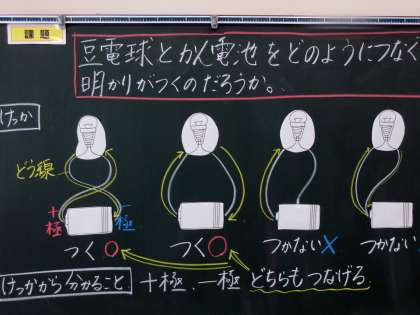 課題
豆電球とかん電池をどのようにつなぐ
明かりがつくのだろうか。
けっか
どう線
+極
-極
つく○
つく○
つかない×
つかない
けっかから分かること
+極、-極 どちらもつなげる